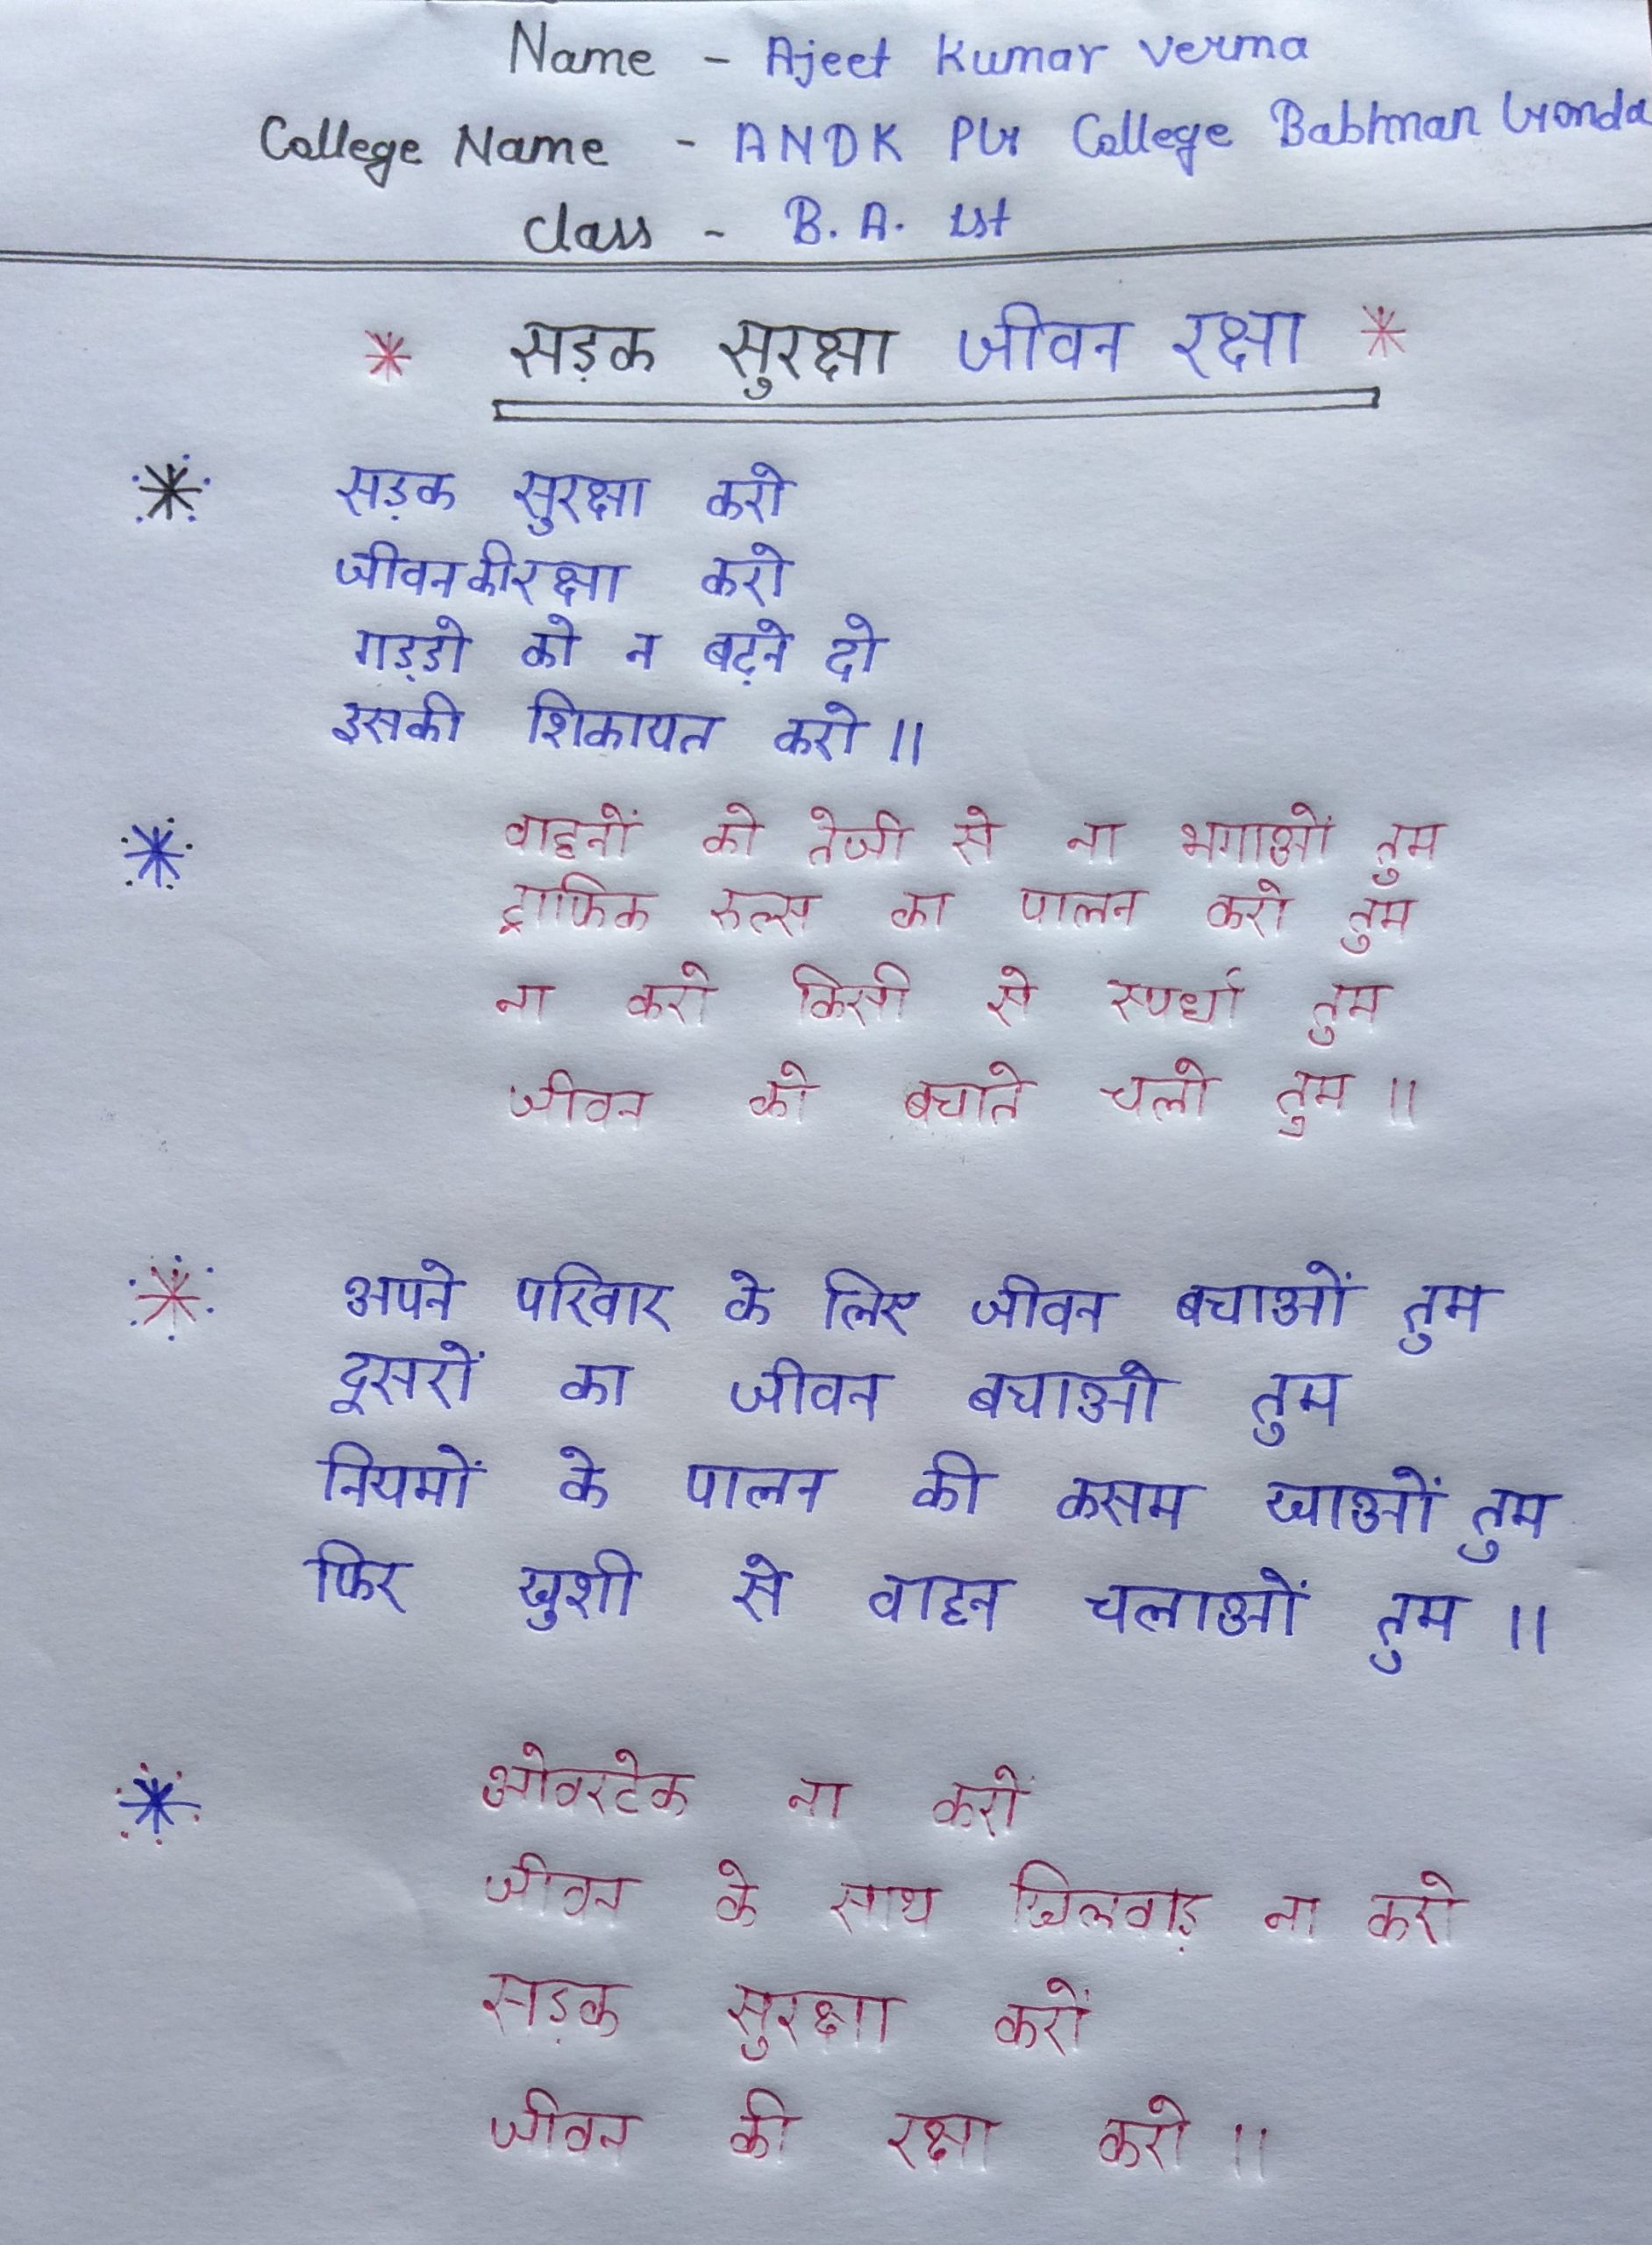 Name - Ajeet Kumar Verma
College Name - ANDK PG College Babhnan Gonda
Class - B. A. 1st
* सड़क सुरक्षा जीवन रक्षा *
सड़क सुरक्षा करो
जीवन की रक्षा करो
गड्डो को न बढ़ने दो
इसकी शिकायत करो ॥
वाहनों को तेजी से ना भगाओं तुम
ट्राफिक रुल्स का पालन करो तुम
ना करो किसी से स्पर्धा तुम
जीवन को बचाते चलो तुम ॥
अपने परिवार के लिए जीवन बचाओं तुम
दूसरों का जीवन बचाओ तुम
नियमों के पालन की कसम खाओं तुम
फिर खुशी से वाहन चलाओं तुम ॥
ओवरटेक ना करों
जीवन के साथ खिलवाड़ ना करो
सड़क सुरक्षा करों
जीवन की रक्षा करो ॥